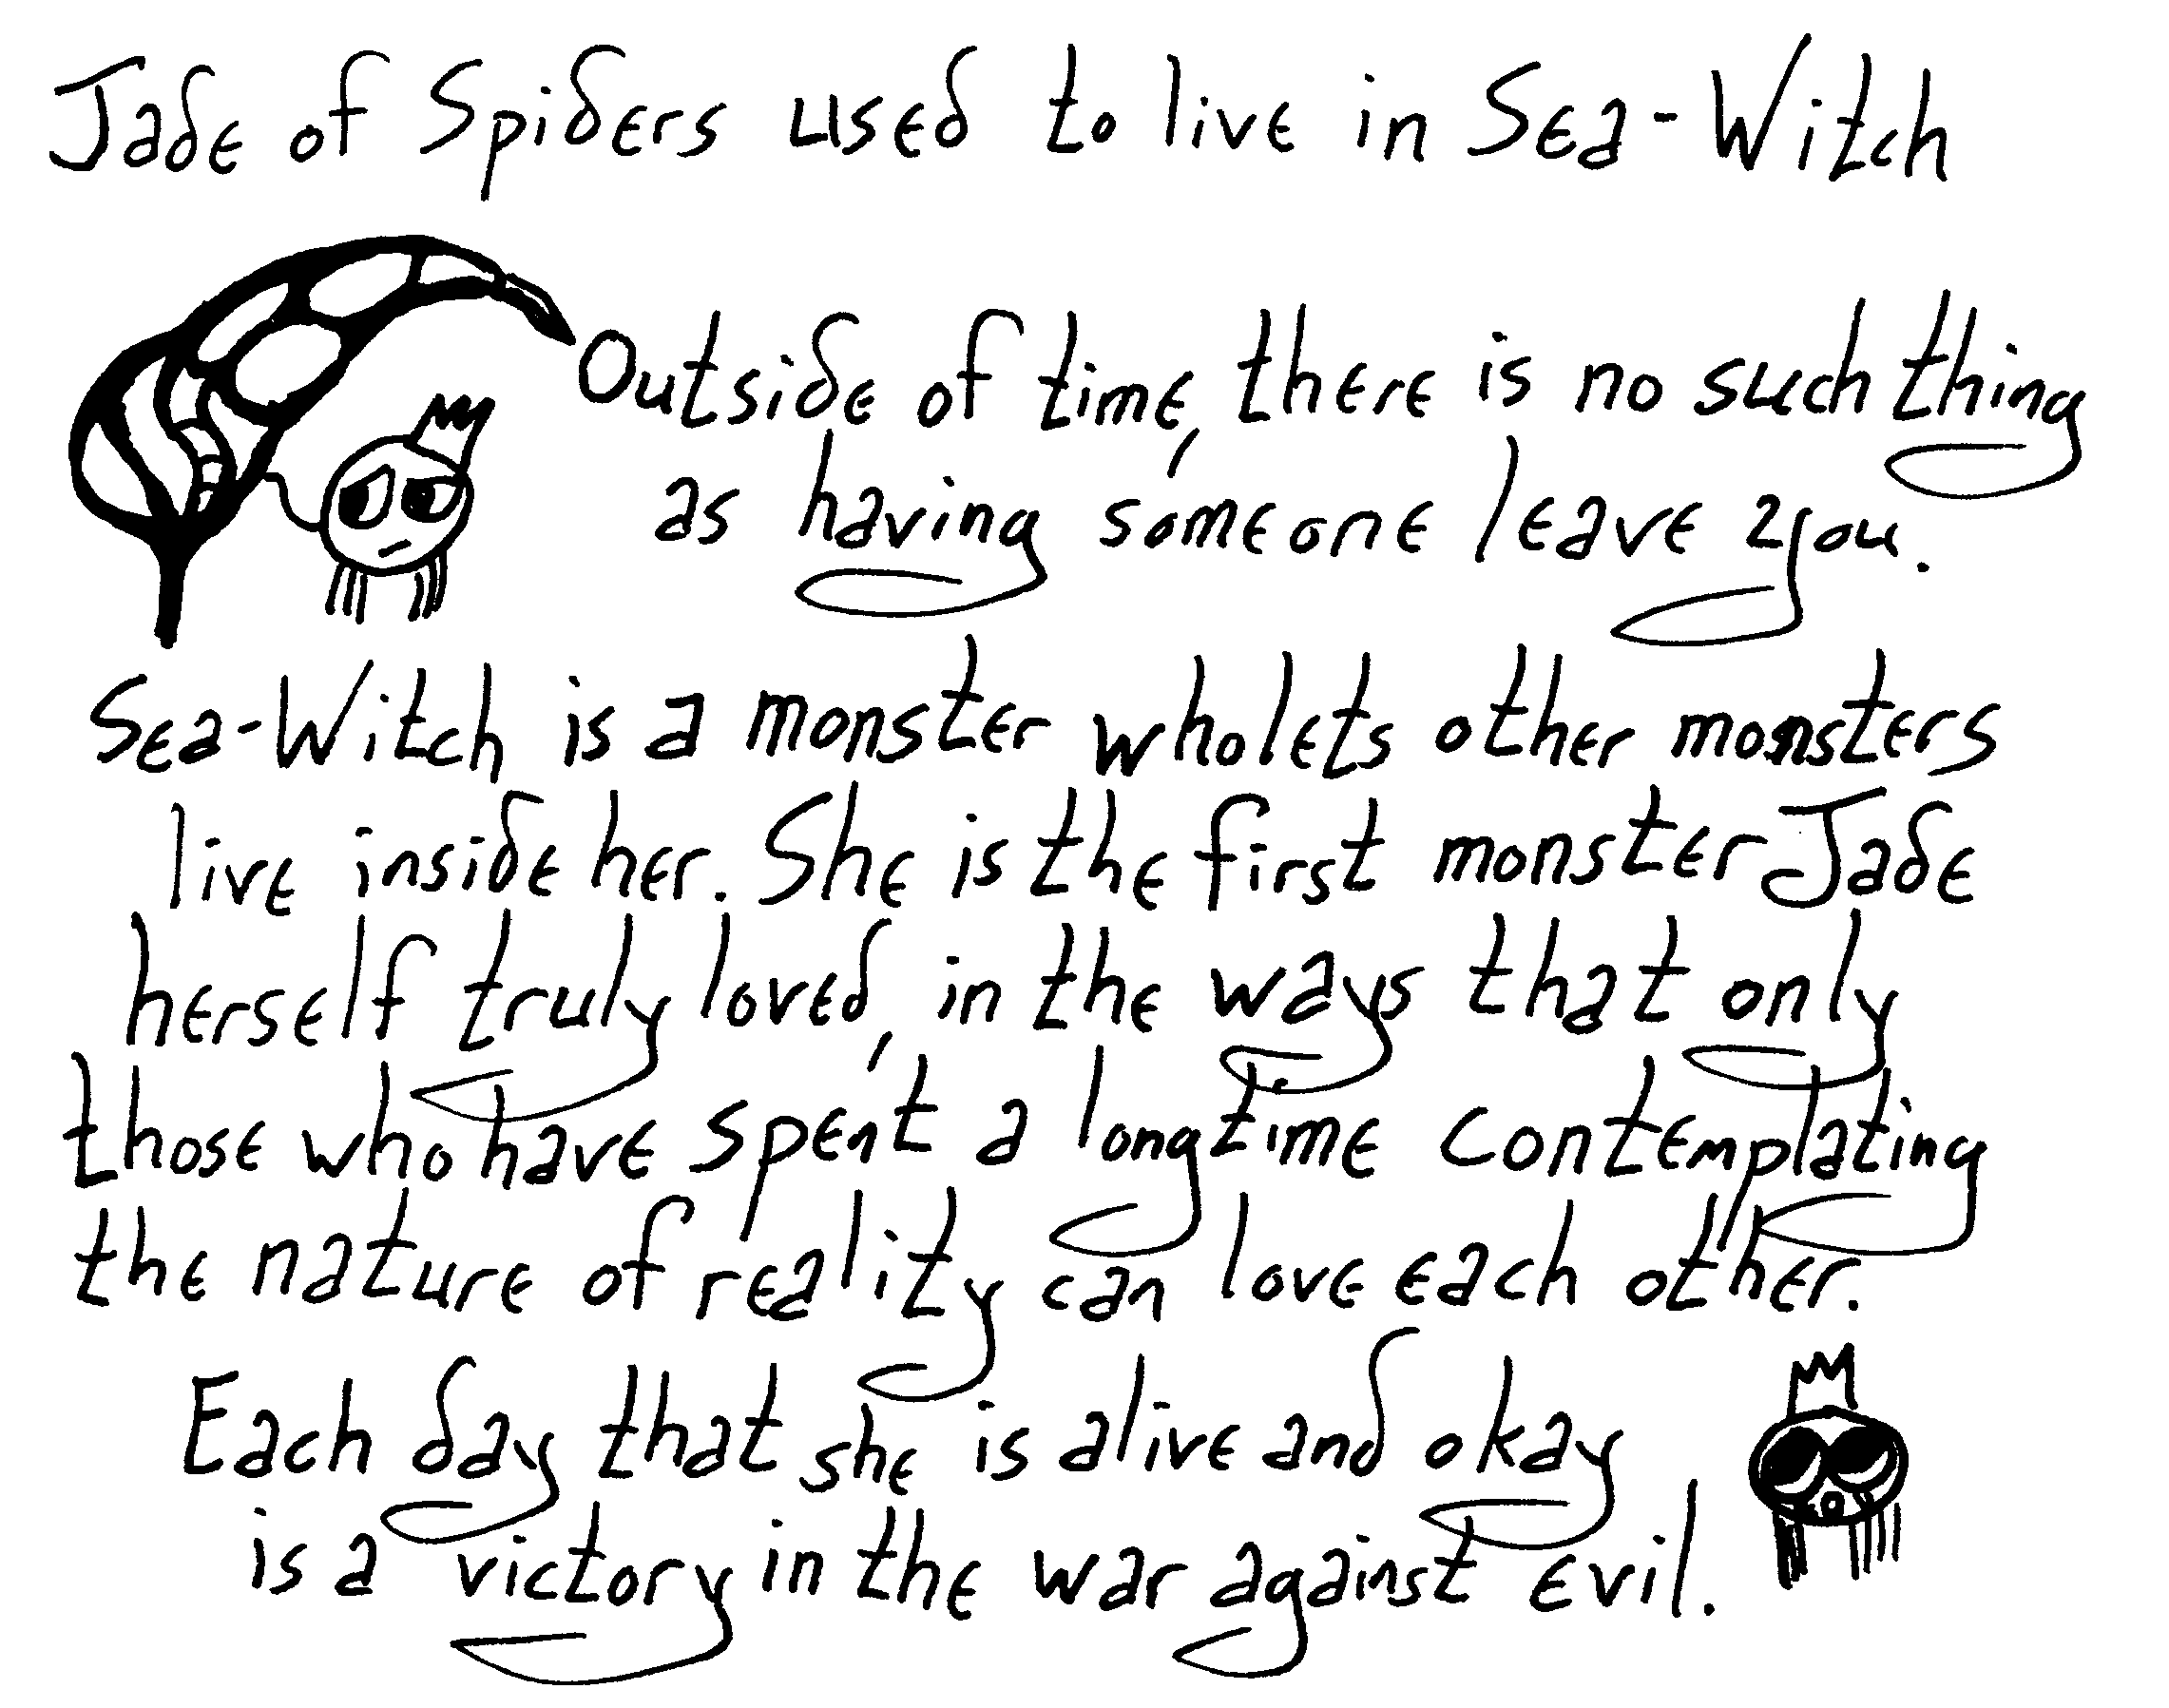 Jade of Spiders used to live in Sea-Witch
Outside of time, there is no such thing
as having someone leave you.
Sea-Witch is a monster who lets other monsters
live inside her. She is the first monster Jade
herself truly loved, in the ways that only
those who have spent a long time contemplating
the nature of reality can love each other.
Each day that she is alive and okay
is a victory in the war against evil.